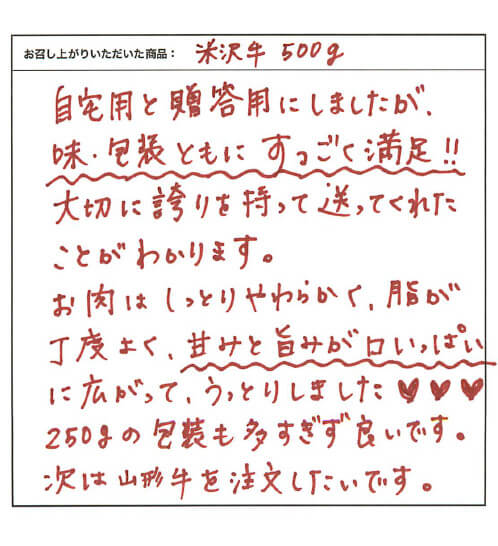 お召し上がりいただいた商品： 米沢牛 500g
自宅用と贈答用にしましたが、
味・包装ともに すっごく満足!!
大切に誇りを持って送ってくれた
ことがわかります。
お肉はしっとりやわらかく、脂が
丁度よく、甘みと旨みが口いっぱい
に広がって、うっとりしました♥♥♥
250gの包装も多すぎず良いです。
次は山形牛を注文したいです。